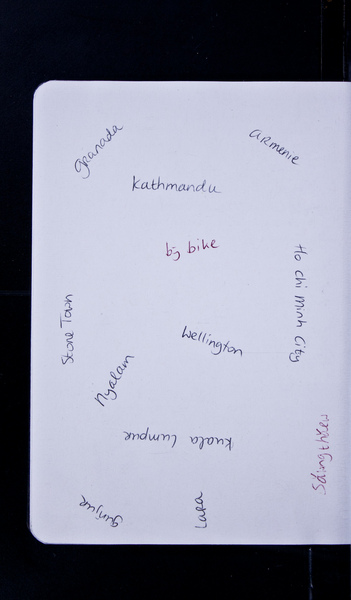 Granada
Armenie
Kathmandu
big bike
Ho chi Minh City
Stone Town
Wellington
Nyalam
Kuala Lumpur
Gunjur
Lapa